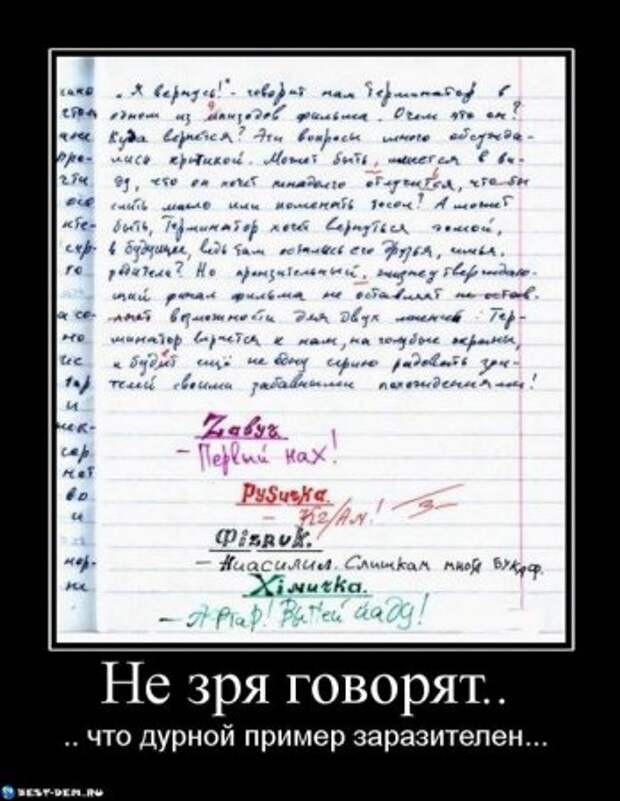 „Я вернусь!"- говорит нам Терминатор в
одном из эпизодов фильма. О чем это он?
Куда вернется? Эти вопросы много обсужда-
лись критикой. Может быть, имеется в ви-
ду, что он хочет ненадолго отлучится, что-бы
слить масло или поменять тосол? А может
быть, Терминатор хочет вернуться домой,
в будущее, ведь там остались его друзья, семья,
родители? Но пронзительный, жизнеутверждаю-
щий финал фильма не оставляет не остав-
ляет возможности для двух мнений: Тер-
минатор вернется к нам, на голубые экраны,
и будит ещё не одну серию радовать зри-
телей своими забавными похождениями!
Zавуч
- Первый нах!
РуSичка.
- КГ/Ам! 3-
Фiзruk.
- Ниасилил. Слишкам многа букаф.
Хiмичка.
- Афтар! Выпей йаду!
Не зря говорят..
.. что дурной пример заразителен...
BEST-DEM.RU